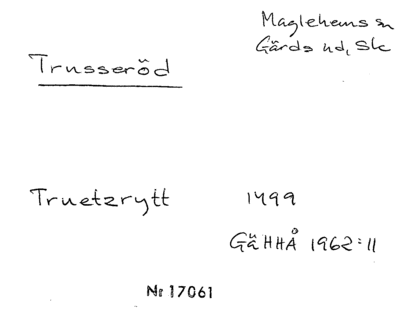 Maglehems sn
Gärds hd, Sk
Trusseröd
Truetzrytt 1499
GäHHÅ 1962:11
Nr 17061